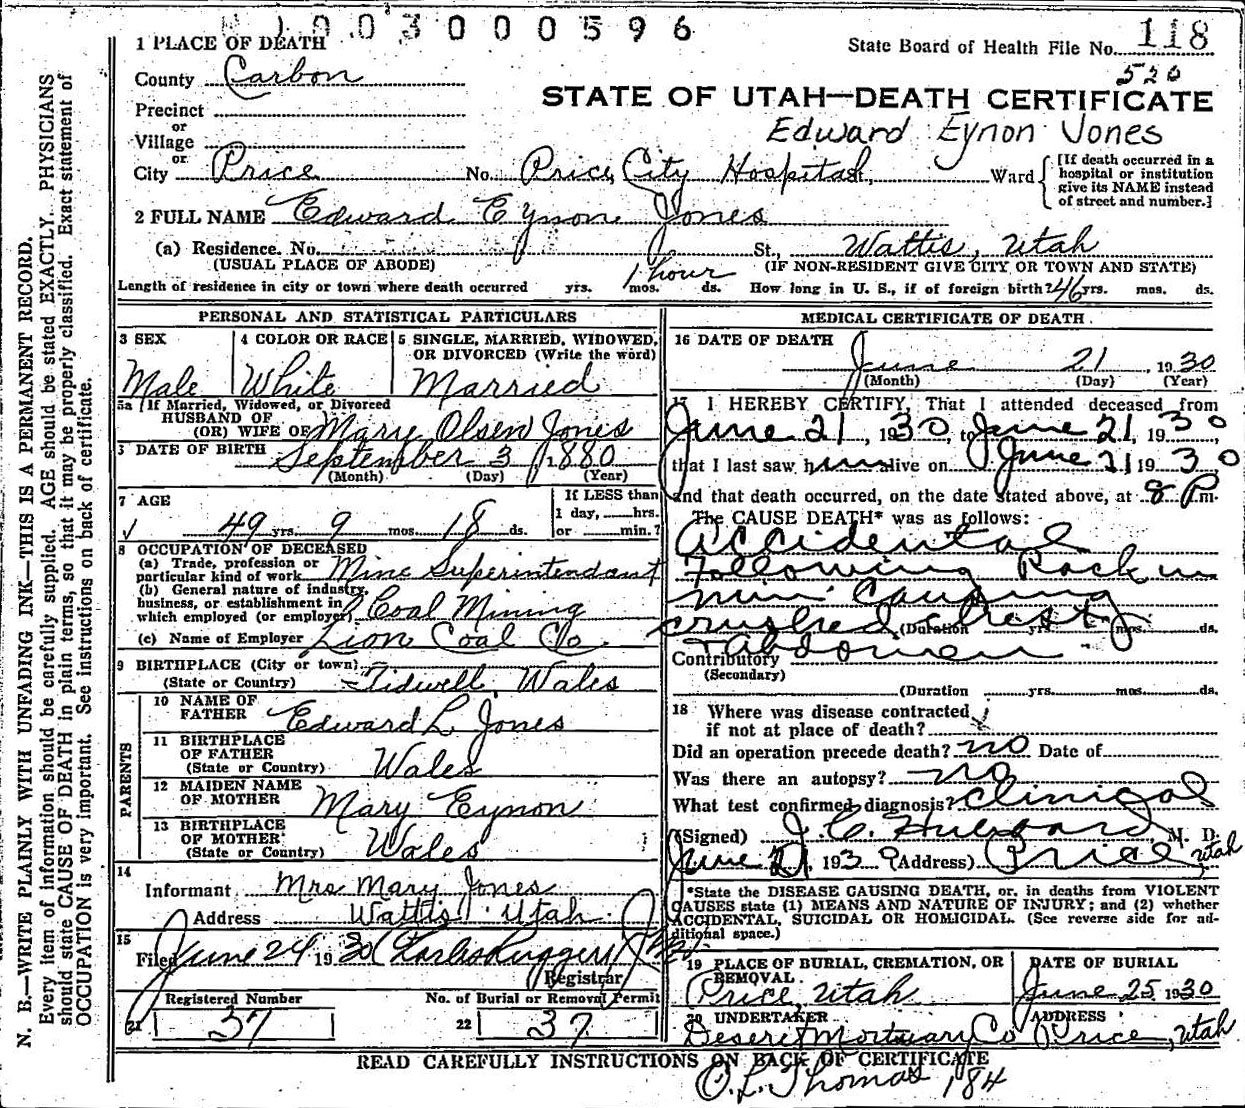 003000596
1 PLACE OF DEATH
State Board of Health File No. 118
526
County Carbon
STATE OF UTAH—DEATH CERTIFICATE
Precinct
or
Village
Edward Eynon Jones
or
City Price No. Price City Hospital, Ward
[If death occurred in a
hospital or institution
give its NAME instead
of street and number.]
2 FULL NAME Edward Eynon Jones
(a) Residence. No. St., Wattis, Utah
(USUAL PLACE OF ABODE) (IF NON-RESIDENT GIVE CITY OR TOWN AND STATE)
1 hour
Length of residence in city or town where death occurred yrs. mos. ds. How long in U. S., if of foreign birth? 46 yrs. mos. ds.
PERSONAL AND STATISTICAL PARTICULARS
3 SEX 4 COLOR OR RACE 5 SINGLE, MARRIED, WIDOWED,
OR DIVORCED (Write the word)
Male White Married
5a If Married, Widowed, or Divorced
HUSBAND OF
(OR) WIFE OF Mary Olsen Jones
DATE OF BIRTH September 3, 1880
(Month) (Day) (Year)
7 AGE If LESS than
1 day, hrs.
49 yrs. 9 mos. 18 ds. or min.?
8 OCCUPATION OF DECEASED
(a) Trade, profession or
particular kind of work Mine Superintendant
(b) General nature of industry,
business, or establishment in
which employed (or employer) Coal Mining
(c) Name of Employer Lion Coal Co.
9 BIRTHPLACE (City or town)
(State or Country) Tidwell, Wales
PARENTS
10 NAME OF
FATHER Edward L Jones
11 BIRTHPLACE
OF FATHER
(State or Country) Wales
12 MAIDEN NAME
OF MOTHER Mary Eynon
13 BIRTHPLACE
OF MOTHER
(State or Country) Wales
14
Informant Mrs Mary Jones
Address Wattis, Utah
15
Filed June 24 1930
Registrar
Registered Number No. of Burial or Removal Permit
21 37 22 37
MEDICAL CERTIFICATE OF DEATH
16 DATE OF DEATH
June 21, 1930
(Month) (Day) (Year)
17 I HEREBY CERTIFY, That I attended deceased from
June 21, 1930, to June 21, 1930,
that I last saw him alive on June 21 1930
and that death occurred, on the date stated above, at 8 P.m.
The CAUSE DEATH* was as follows:
Accidental
Following Rock in
mine Causing
crushed chest &
(Duration yrs. mos. ds.
abdomen
Contributory
(Secondary)
(Duration yrs. mos. ds.
18 Where was disease contracted
if not at place of death?
Did an operation precede death? no Date of
Was there an autopsy? no
What test confirmed diagnosis? Clinical
(Signed) J. C. Hubbard M. D.
June 21 193 (Address) Price, Utah
*State the DISEASE CAUSING DEATH, or, in deaths from VIOLENT
CAUSES state (1) MEANS AND NATURE OF INJURY; and (2) whether
ACCIDENTAL, SUICIDAL OR HOMICIDAL. (See reverse side for ad-
ditional space.)
19 PLACE OF BURIAL, CREMATION, OR
REMOVAL
Price, Utah
DATE OF BURIAL
June 25 1930
20 UNDERTAKER ADDRESS
Deseret Mortuary Co Price, Utah
READ CAREFULLY INSTRUCTIONS ON BACK OF CERTIFICATE
O. L. Thomas 184
N. B.—WRITE PLAINLY WITH UNFADING INK—THIS IS A PERMANENT RECORD.
Every item of information should be carefully supplied. AGE should be stated EXACTLY. PHYSICIANS
should state CAUSE OF DEATH in plain terms, so that it may be properly classified. Exact statement of
OCCUPATION is very important. See instructions on back of certificate.